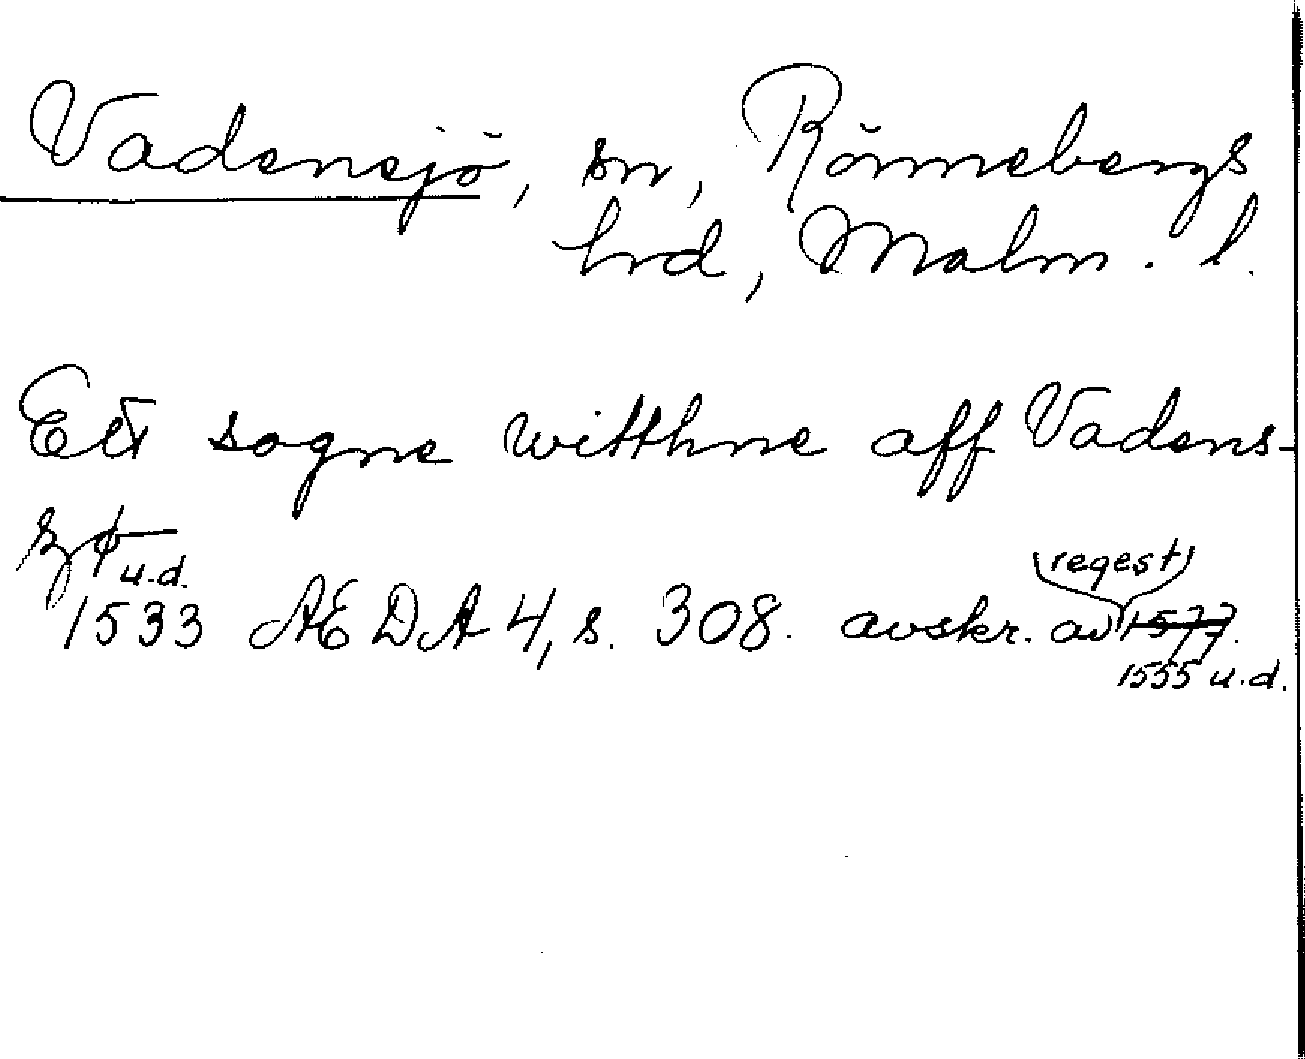 Vadensjö, sn, Rönnebergs
hrd, Malm. l.
Ett sogne witthne aff Vadens-
zø
u.d.
1533 AEDA 4, s. 308. avskr. av (regest) 1577.
1555 u.d.